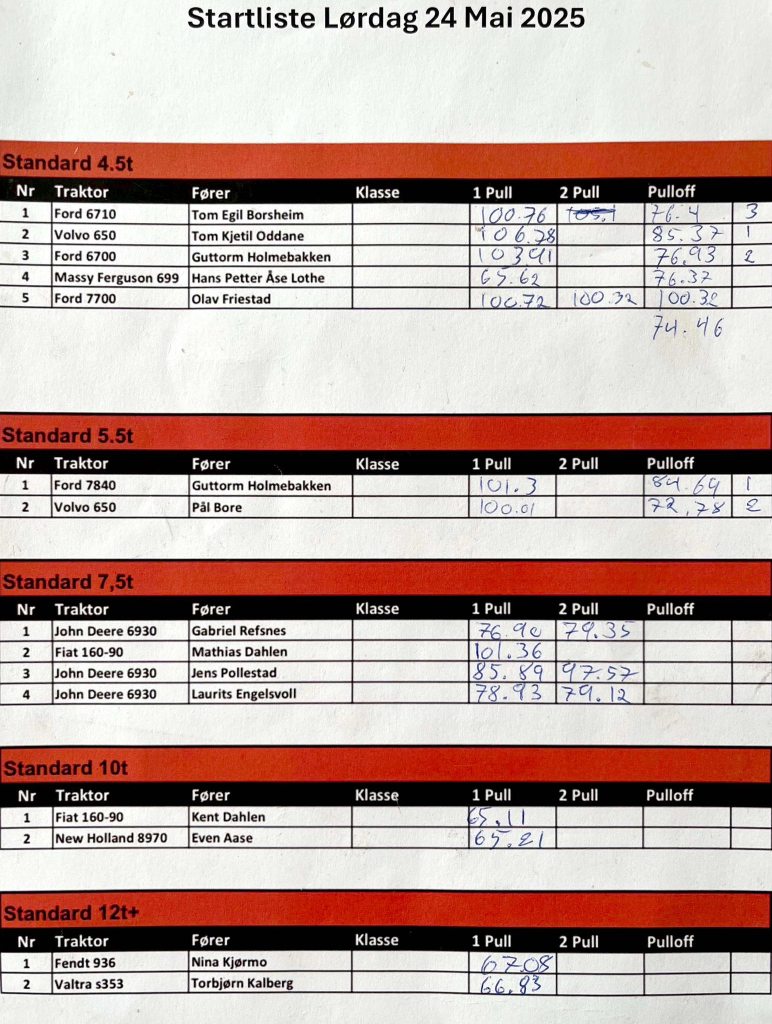 Startliste Lørdag 24 Mai 2025
Standard 4.5t
Nr Traktor Fører Klasse 1 Pull 2 Pull Pulloff
1 Ford 6710 Tom Egil Borsheim 100.76 76.4 3
2 Volvo 650 Tom Kjetil Oddane 106.78 85.37 1
3 Ford 6700 Guttorm Holmebakken 103.91 76.93 2
4 Massy Ferguson 699 Hans Petter Åse Lothe 65.62 76.37
5 Ford 7700 Olav Friestad 100.72 100.32 100.32
74.46
Standard 5.5t
Nr Traktor Fører Klasse 1 Pull 2 Pull Pulloff
1 Ford 7840 Guttorm Holmebakken 101.3 84.69 1
2 Volvo 650 Pål Bore 100.01 72,78 2
Standard 7,5t
Nr Traktor Fører Klasse 1 Pull 2 Pull Pulloff
1 John Deere 6930 Gabriel Refsnes 76.90 79.35
2 Fiat 160-90 Mathias Dahlen 101.36
3 John Deere 6930 Jens Pollestad 85.89 97.57
4 John Deere 6930 Laurits Engelsvoll 78.93 79.12
Standard 10t
Nr Traktor Fører Klasse 1 Pull 2 Pull Pulloff
1 Fiat 160-90 Kent Dahlen 65.11
2 New Holland 8970 Even Aase 65.21
Standard 12t+
Nr Traktor Fører Klasse 1 Pull 2 Pull Pulloff
1 Fendt 936 Nina Kjørmo 67.08
2 Valtra s353 Torbjørn Kalberg 66.83